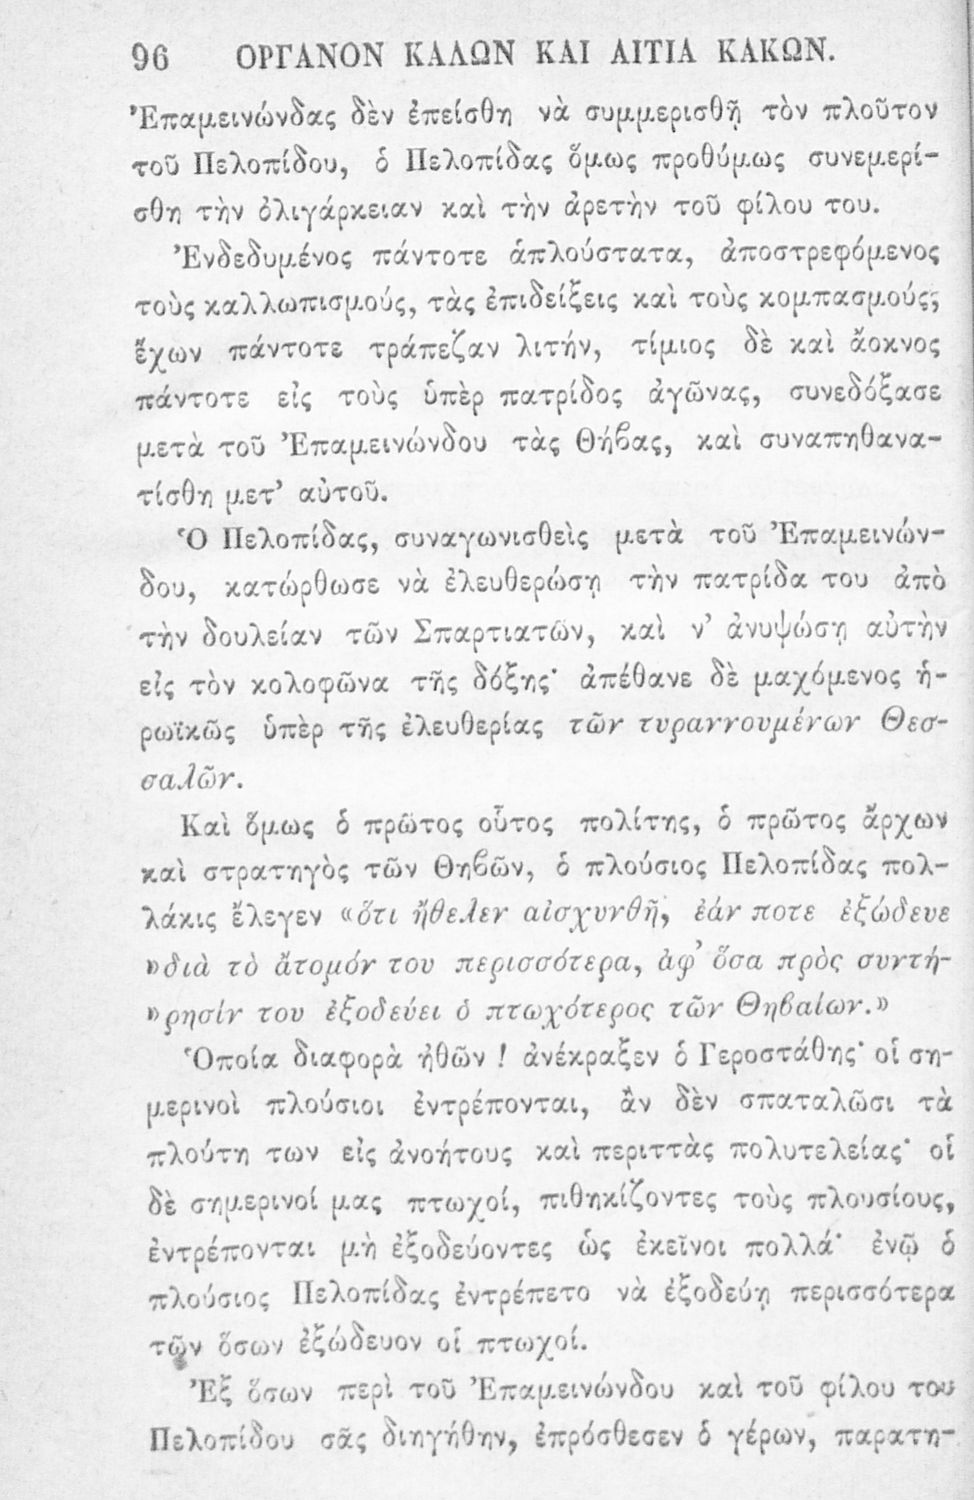 96 ΟΡΓΑΝΟΝ ΚΑΛΩΝ ΚΑΙ ΑΙΤΙΑ ΚΑΚΩΝ.
Ἐπαμεινώνδας δὲν ἐπείσθη νὰ συμμερισθῇ τὸν πλοῦτον
τοῦ Πελοπίδου, ὁ Πελοπίδας ὅμως προθύμως συνεμερί-
σθη τὴν ὀλιγάρκειαν καὶ τὴν ἀρετὴν τοῦ φίλου του.
Ἐνδεδυμένος πάντοτε ἁπλούστατα, ἀποστρεφόμενος
τοὺς καλλωπισμούς, τὰς ἐπιδείξεις καὶ τοὺς κομπασμούς,
ἔχων πάντοτε τράπεζαν λιτήν, τίμιος δὲ καὶ ἄοκνος
πάντοτε εἰς τοὺς ὑπὲρ πατρίδος ἀγῶνας, συνεδόξασε
μετὰ τοῦ Ἐπαμεινώνδου τὰς Θήβας, καὶ συναπηθανα-
τίσθη μετ’ αὐτοῦ.
Ὁ Πελοπίδας, συναγωνισθεὶς μετὰ τοῦ Ἐπαμεινών-
δου, κατώρθωσε νὰ ἐλευθερώσῃ τὴν πατρίδα του ἀπὸ
τὴν δουλείαν τῶν Σπαρτιατῶν, καὶ ν’ ἀνυψώσῃ αὐτὴν
εἰς τὸν κολοφῶνα τῆς δόξης· ἀπέθανε δὲ μαχόμενος ἡ-
ρωϊκῶς ὑπὲρ τῆς ἐλευθερίας τῶν τυραννουμένων Θεσ-
σαλῶν.
Καὶ ὅμως ὁ πρῶτος οὗτος πολίτης, ὁ πρῶτος ἄρχων
καὶ στρατηγὸς τῶν Θηβῶν, ὁ πλούσιος Πελοπίδας πολ-
λάκις ἔλεγεν «ὅτι ἤθελεν αἰσχυνθῆ, ἐάν ποτε ἐξώδευε
»διὰ τὸ ἄτομόν του περισσότερα, ἀφ’ ὅσα πρὸς συντή-
»ρησίν του ἐξοδεύει ὁ πτωχότερος τῶν Θηβαίων.»
Ὁποία διαφορὰ ἠθῶν ! ἀνέκραξεν ὁ Γεροστάθης· οἱ ση-
μερινοὶ πλούσιοι ἐντρέπονται, ἂν δὲν σπαταλῶσι τὰ
πλούτη των εἰς ἀνοήτους καὶ περιττὰς πολυτελείας· οἱ
δὲ σημερινοί μας πτωχοί, πιθηκίζοντες τοὺς πλουσίους,
ἐντρέπονται μὴ ἐξοδεύοντες ὡς ἐκεῖνοι πολλά· ἐνῷ ὁ
πλούσιος Πελοπίδας ἐντρέπετο νὰ ἐξοδεύῃ περισσότερα
τῶν ὅσων ἐξώδευον οἱ πτωχοί.
Ἐξ ὅσων περὶ τοῦ Ἐπαμεινώνδου καὶ τοῦ φίλου του
Πελοπίδου σᾶς διηγήθην, ἐπρόσθεσεν ὁ γέρων, παρατη-